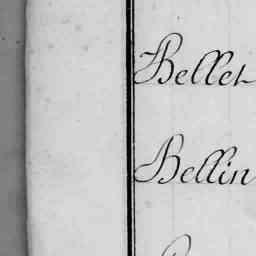 Bellet
Bellin